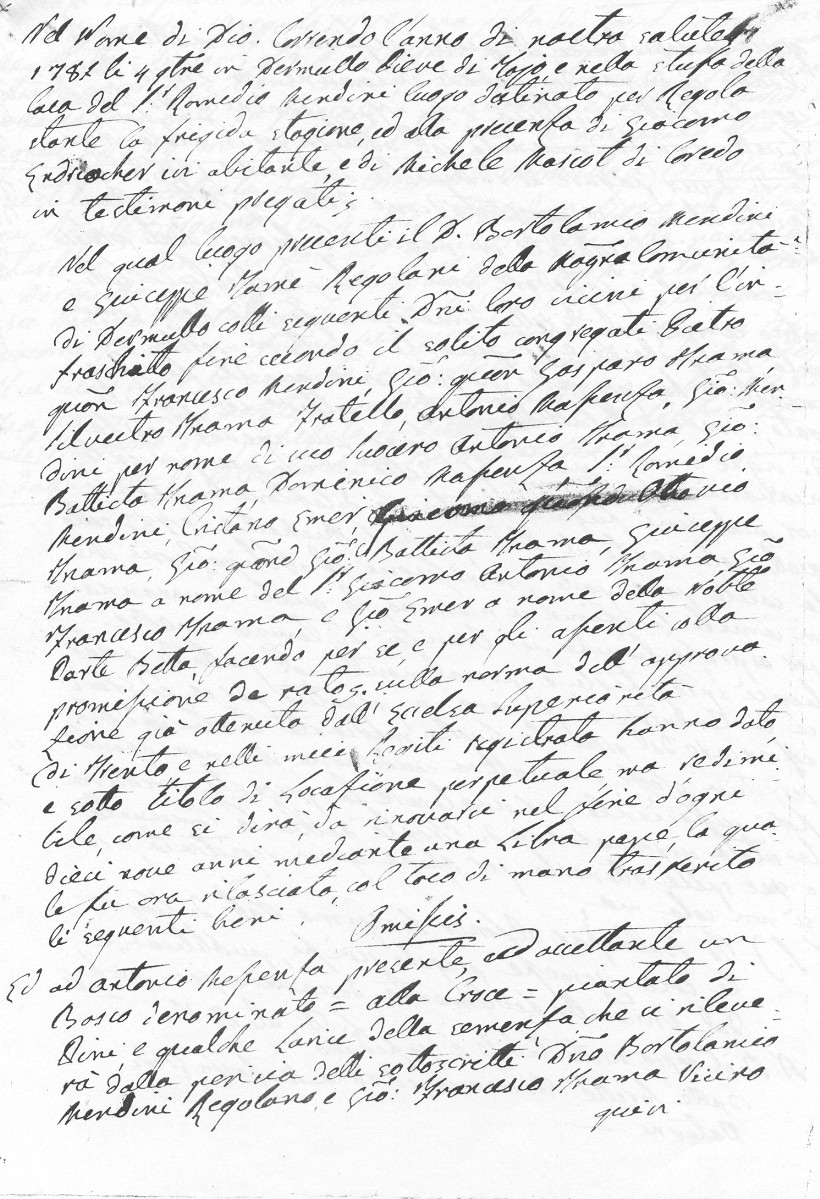 Nel Nome di Dio. Correndo l'anno di nostra salute
1787 li 4 9bre in Dermullo Pieve di Tajo, e nella stufa della
Casa del Sr. Romedio Mendini luogo destinato per Regola
stante la frigida stagione, ed alla presenza di Giacomo
Endriocher ivi abitante, e di Michele Mascot di Coredo
in testimoni pregati
Nel qual luogo presenti il D. Bortolameo Mendini
e Giuseppe Tamè Regolani della Magfca Comunità
di Dermullo colli sequenti Dni loro vicini per l'in-
frascritto fine secondo il solito congregati Pietro
quon Francesco Mendini, Gio: quon Gasparo Inama,
Silvestro Inama Fratello, Antonio Massenza, Gio: Men-
dini per nome di suo Suocero Antonio Inama, Gio:
Battista Inama, Domenico Massenza, Sr. Romedio
Mendini, Cristano Emer, Giacomo quond Ottavio
Inama, Gio: qond Gio: Battista Inama, Giuseppe
Inama a nome del Sr. Giacomo Antonio Inama Gio
Francesco Inama, e Gio Emer a nome della Noble
Parte Betta, facendo per se, e per gli assenti colla
promissione de rato, sulla norma dell' approva-
zione già ottenuta dall' Eccelsa Superiorità
di Trento, e nelli miei scritti registrata hanno dato
e sotto titolo di Locazione perpetuale, ma redimi
bile, come si dirà, da rinovarsi nel fine d'ogni
dieci nove anni mediante una Libra pepe, la qua-
le fu ora rilasciata, col toco di mano trasferito
li sequenti beni. Omissis.
Ed ad Antonio Massenza presente, ed accettante un
Bosco denominato = alla Croce = piantato di
Pini, e qualche Larice della semenza che si rileve-
rà dalla pericia delli sottoscritti Dno Bortolameo
Mendini Regolano, e Gio: Francesco Inama Vicino
quin